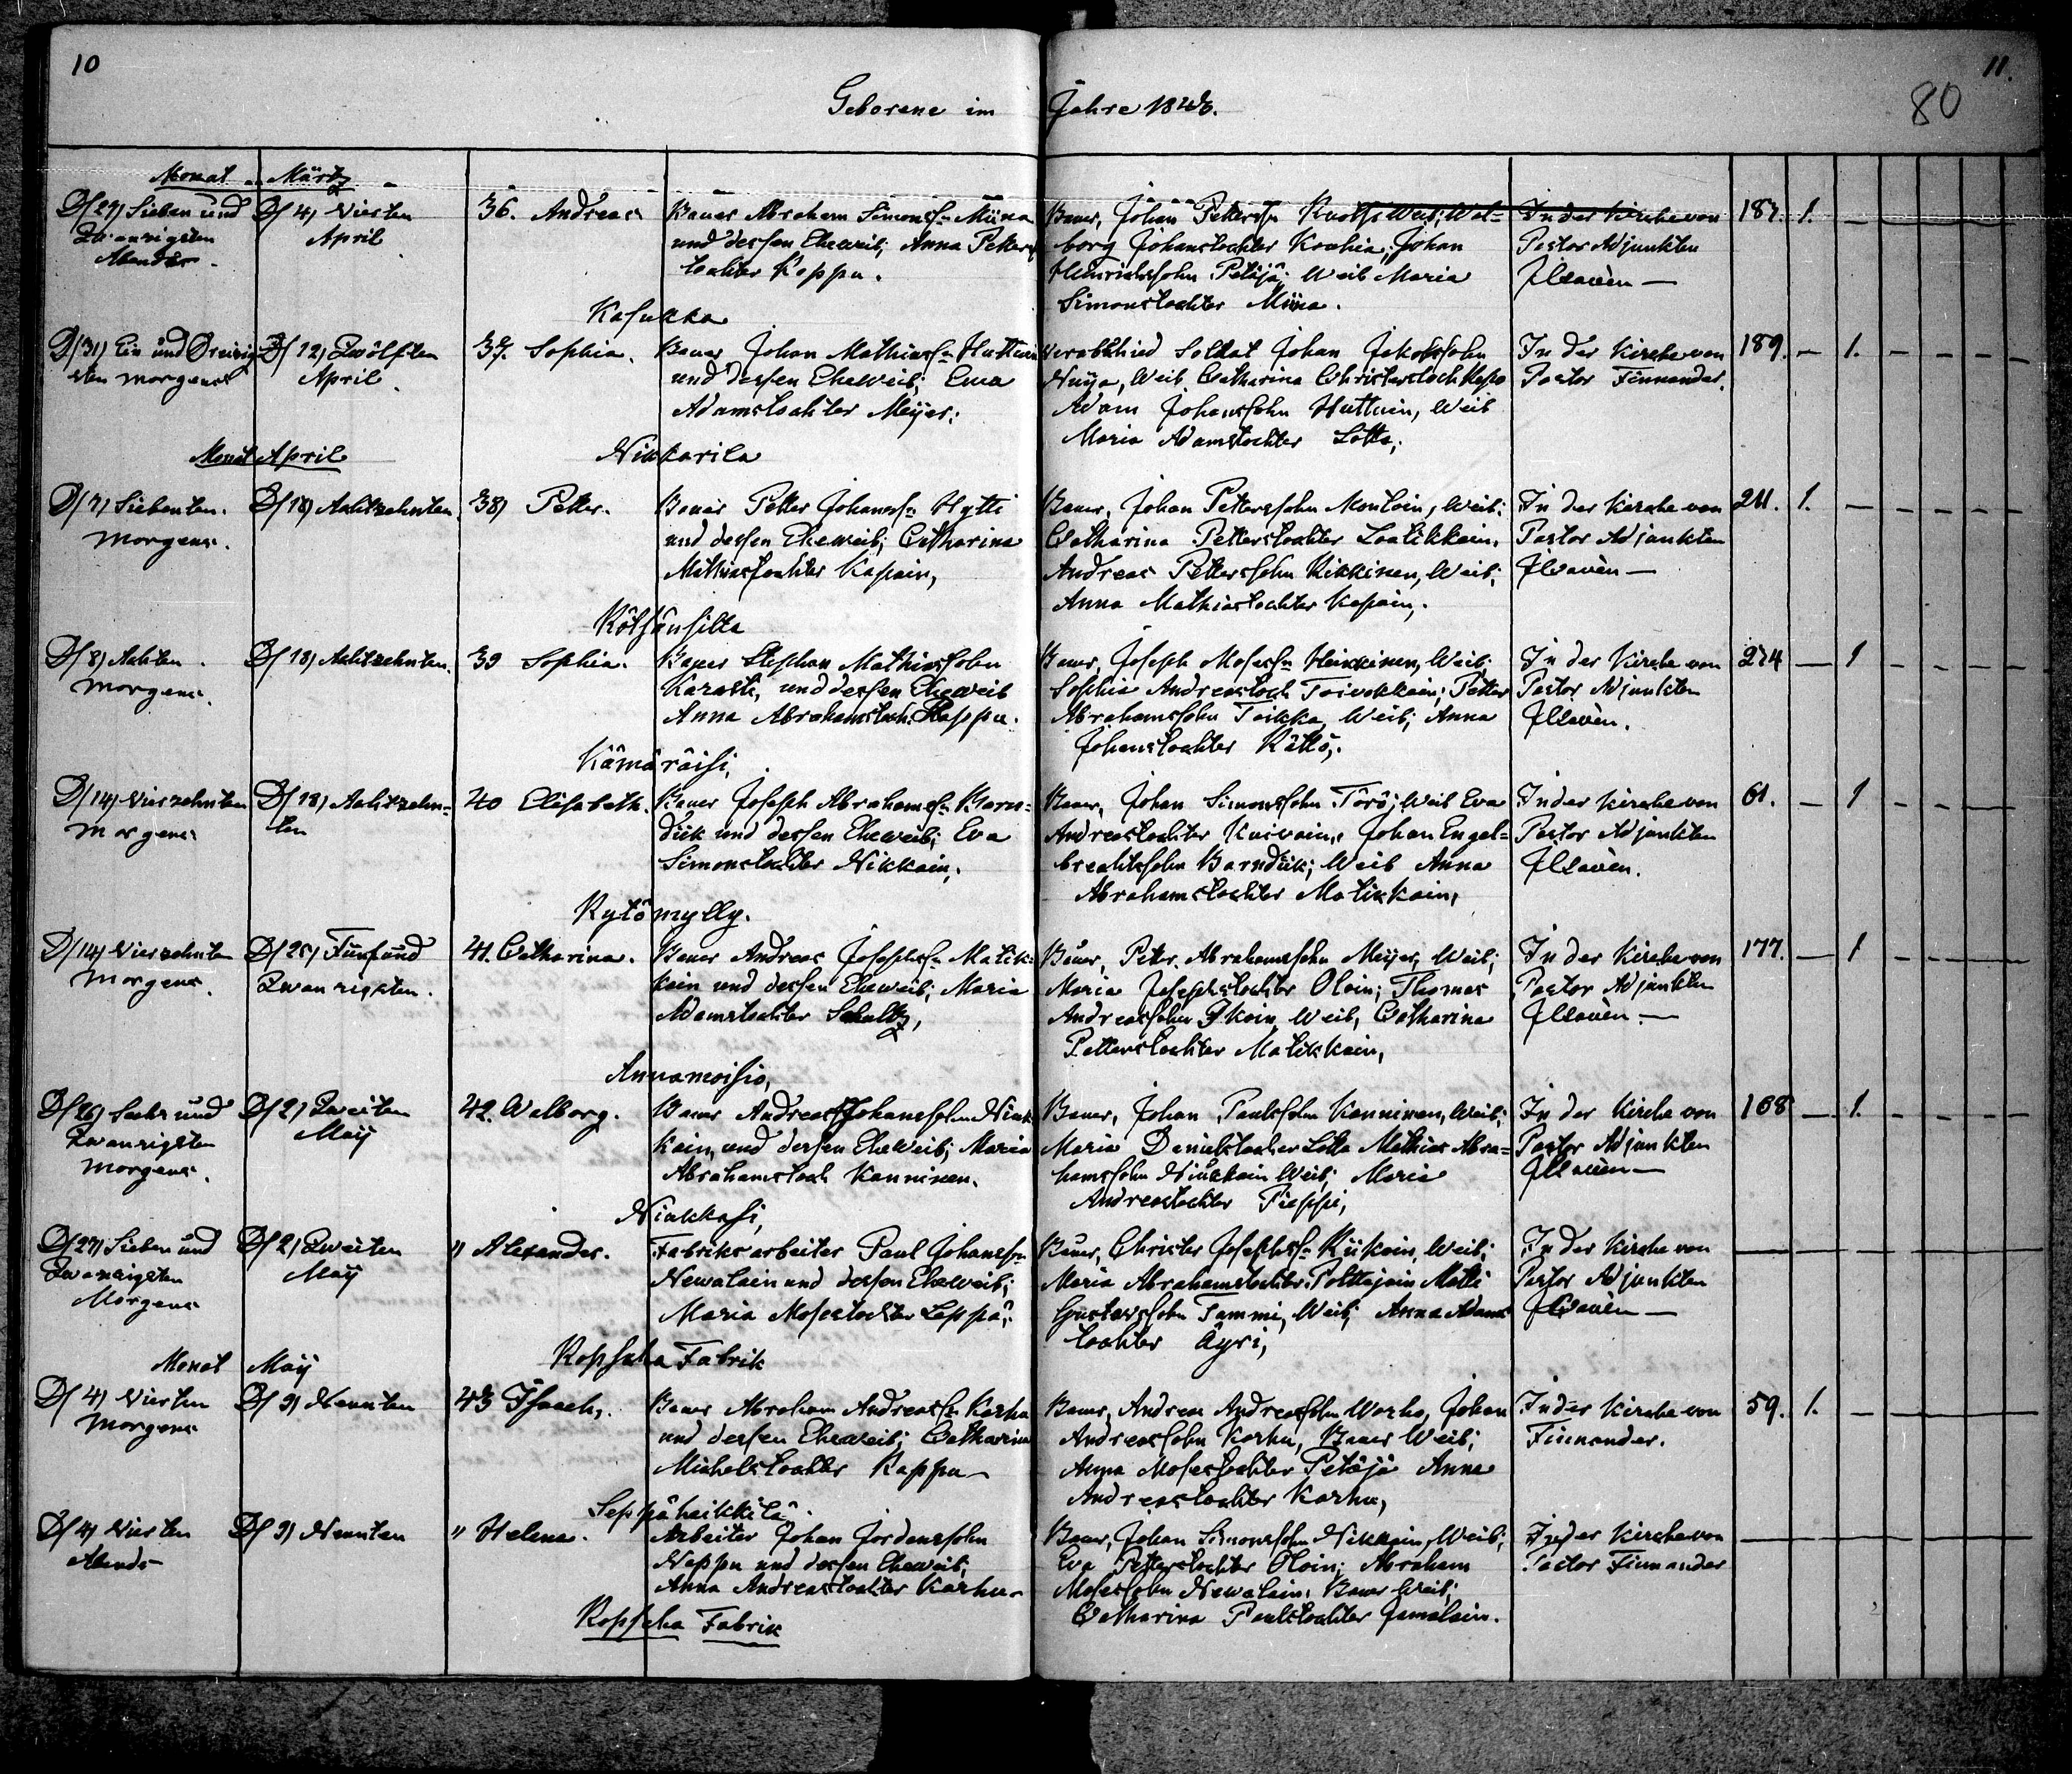 10
11.
80
Geborene im Jahre 1848.
Monat März
D/27) Sieben und Zwanzigsten Abends
D/4) Vierten April
36. Andreas
Bauer Abraham Simonss. Miina
und dessen Eheweib; Anna Petters
tochter Roppu.
Bauer, Johan Petterss. Weib; Wal=
borg Johanstochter Johan
Heinrichssohn Petäjä Weib Maria
Simonstochter Miina.
In der Kirche von
Pastor Adjunkten
187. 1. —
Kasukka
D/31) Ein und Dreizig
sten morgens
D/12) Zwölften
April.
37. Sophia.
Bauer Johan Mathiass. Huttuin
und dessen Eheweib; Ewa
Adamstochter Meijer.
Verabschied Soldat Johan Jakobssohn
Weib Catharina
Adam Johanssohn Huttuin, Weib
Maria Adamstochter Lotta,
In der Kirche von
Pastor Finnander.
189. — 1. — — — —
Monat April
Nikkarila
D/7) Siebenten.
morgens.
D/18) Achtzehnten.
38) Petter.
Bauer Petter Johanss. Hytti
und dessen Eheweib; Catharina
Mathiastochter Kapain,
Bauer, Johan Petterssohn Weib;
Catharina Petterstochter
Andreas Petterssohn Kikkinen, Weib;
Anna Mathiastochter Kapain,
In der Kirche von
Pastor Adjunkten
211. 1. — — — — —
Kötsänsilta
D/8) Achten.
morgens.
D/18) Achtzehnten.
39 Sophia.
Bauer Stephan Mathiassohn
und dessen Eheweib
Anna Abrahamstoch. Rappu.
Bauer, Joseph Mosess. Heinkinen, Weib;
Sophia Andreastoch Toivokkain, Petter
Abrahamssohn Toikka, Weib; Anna
Johanstochter Rättö,
In der Kirche von
Pastor Adjunkten
274 — 1 — — — —
Kämäräisi,
D/14) Vierzehnten
morgens
D/18) Achtzehn=
ten
40 Elisabeth.
Bauer Joseph Abrahamss. Barn=
dük und dessen Eheweib; Eva
Simonstochter Nikkain,
Bauer, Johan Simonssohn Törö; Weib Eva
Andreastochter Kurvain, Johan Engel=
brechtssohn Barndük; Weib Anna
Abrahamstochter Matikkain,
In der Kirche von
Pastor Adjunkten
61. — 1 — — — —
Kytömylly.
D/14) Vierzehnten
morgens.
D/25) Fünfund
Zwanzigsten.
41. Catharina.
Bauer Andreas Josephss. Matik=
kain und dessen Eheweib; Maria
Adamstochter Schultz,
Bauer, Peter Abrahamssohn Meijer, Weib;
Maria Josephstochter Oloin; Thomas
Andreassohn Weib, Catharina
Petterstochter Matikkain,
In der Kirche von
Pastor Adjunkten
177. — 1 — — — —
Annamoisio,
D/26) Sechs und
Zwanzigsten
morgens.
D/2) Zweiten
Maij
42. Walborg.
Bauer Andreas Johanssohn Niuk
kain, und dessen Eheweib; Maria
Abrahamstoch Kanninen.
Bauer, Johan Paulssohn Kanninen, Weib;
Maria Danielstocher Lotta Mathias Abra=
hamssohn Niukkain Weib; Maria
Andreastochter Pieppi,
In der Kirche von
Pastor Adjunkten
168 — 1. — — — —
Niukkasi,
D/27) Sieben und
Zwanzigsten
Morgens
D/2) Zweiten
Maij
" Alexander.
Fabriksarbeiter Paul Johanss.
Newalain und dessen Eheweib;
Maria Mosestochter Leppä?
Bauer, Christer Josephss. Kiikain, Weib;
Maria Abrahamstochter Polttajain Matti
Gustavssohn Tammi, Weib; Anna Adams
tochter Äyri,
In der Kirche von
Pastor Adjunkten
Ropscha Fabrik
Monat Maij
D/4) Vierten
Morgens
D/9) Neunten
43 Isaach,
Bauer Abraham Andreass. Karhu
und dessen Eheweib; Catharina
Michelstochter Rappu
Bauer, Andreas Andreassohn Warho, Johan
Andreassohn Karhu, Bauer Weib;
Anna Mosestochter Petäjä Anna
Andreastochter Karhu,
In der Kirche von
Finnander.
59. 1. — — — — —
Seppäheikkilä.
D/4) Vierten
Abends
D/9) Neunten
" Helena.
Arbeiter Johan Jordanssohn
Neppu und dessen Eheweib;
Anna Andreastochter Karhu
Bauer, Johan Simonssohn Nikkain, Weib;
Eva Petterstochter Oloin; Abraham
Mosessohn Newalain, Bauer Weib;
Catharina Paulstochter Jamalain.
In der Kirche von
Pastor Finnander
Ropscha Fabrik